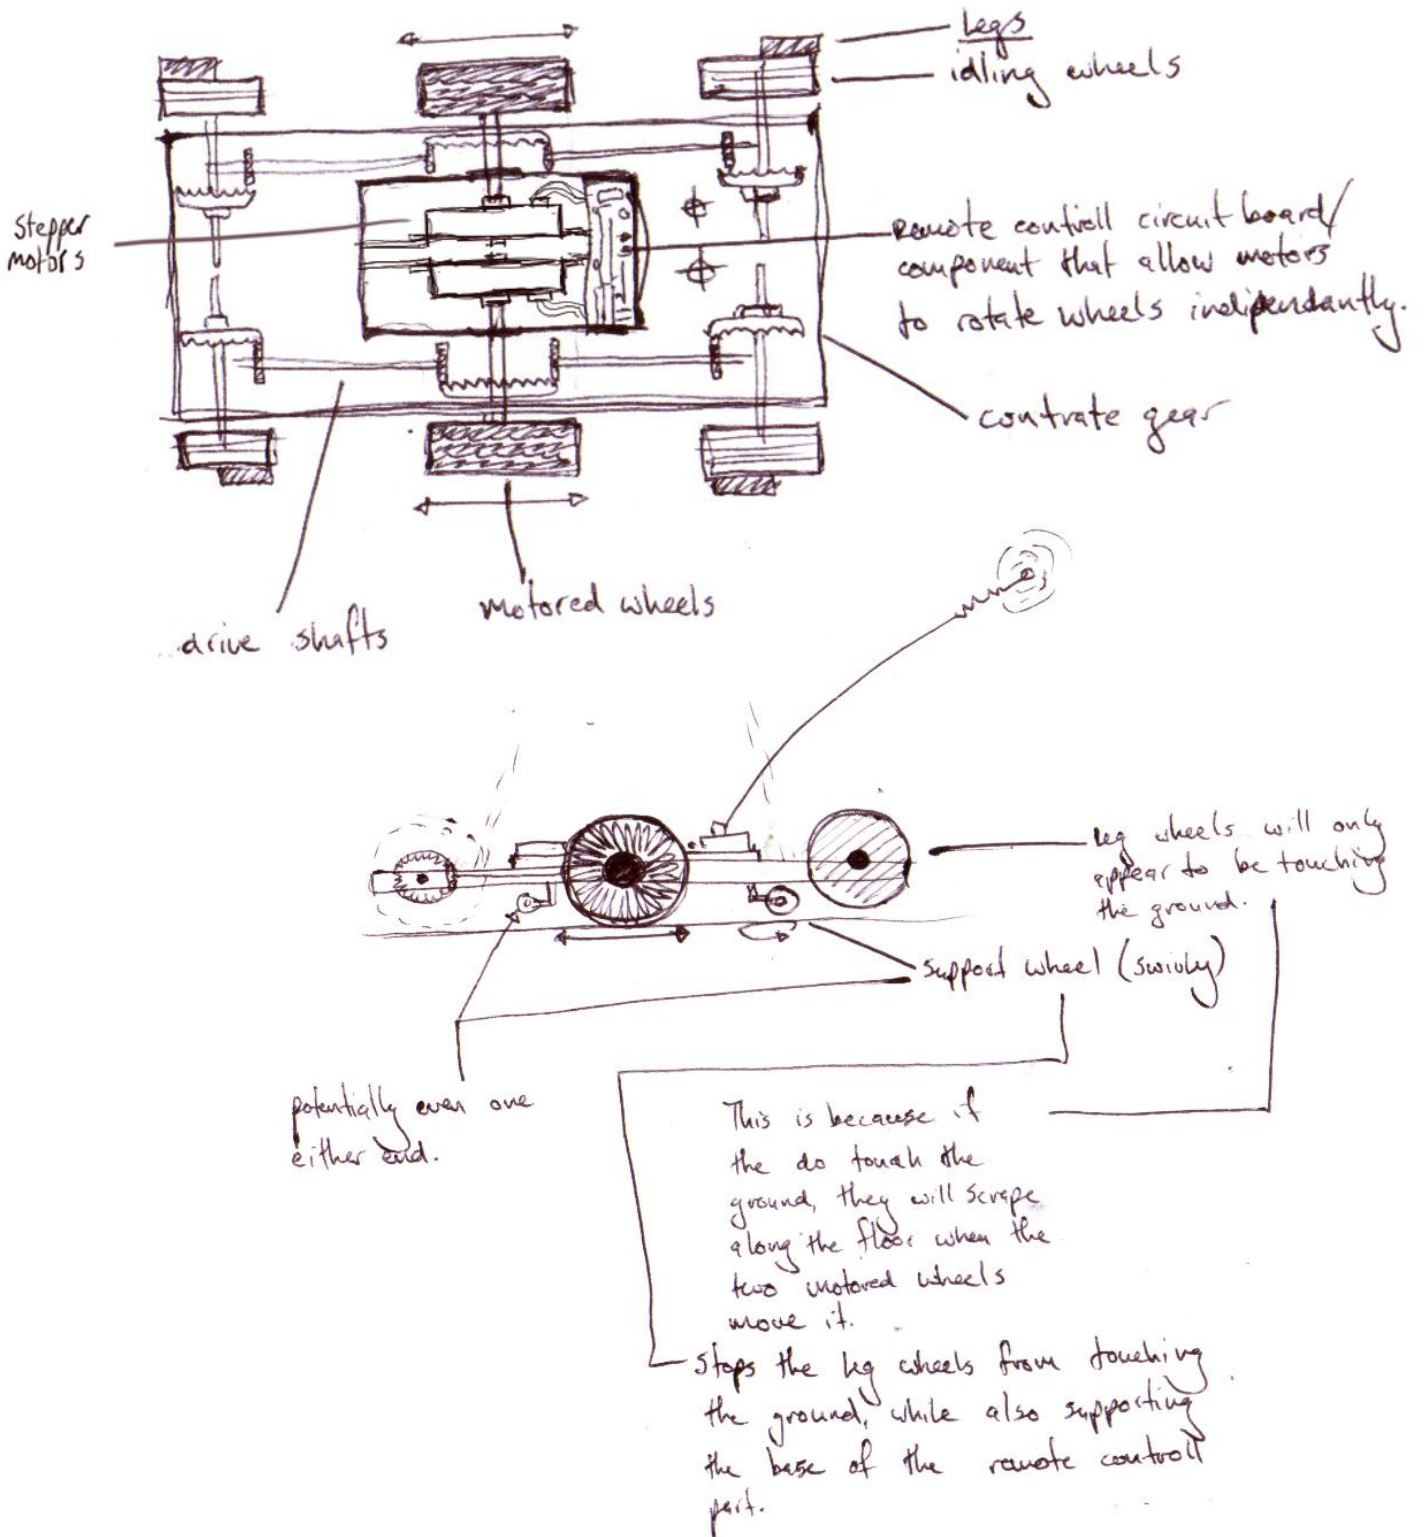 Legs
idling wheels
stepper
motors
Remote controll circuit board/
component that allow motors
to rotate wheels indipendantly.
contrate gear
motored wheels
drive shafts
leg wheels will only
appear to be touching
the ground.
support wheel (swivly)
potentially even one
either end.
This is because if
the do touch the
ground, they will scrape
along the floor when the
two motored wheels
move it.
Stops the leg wheels from touching
the ground, while also supporting
the base of the remote controll
part.